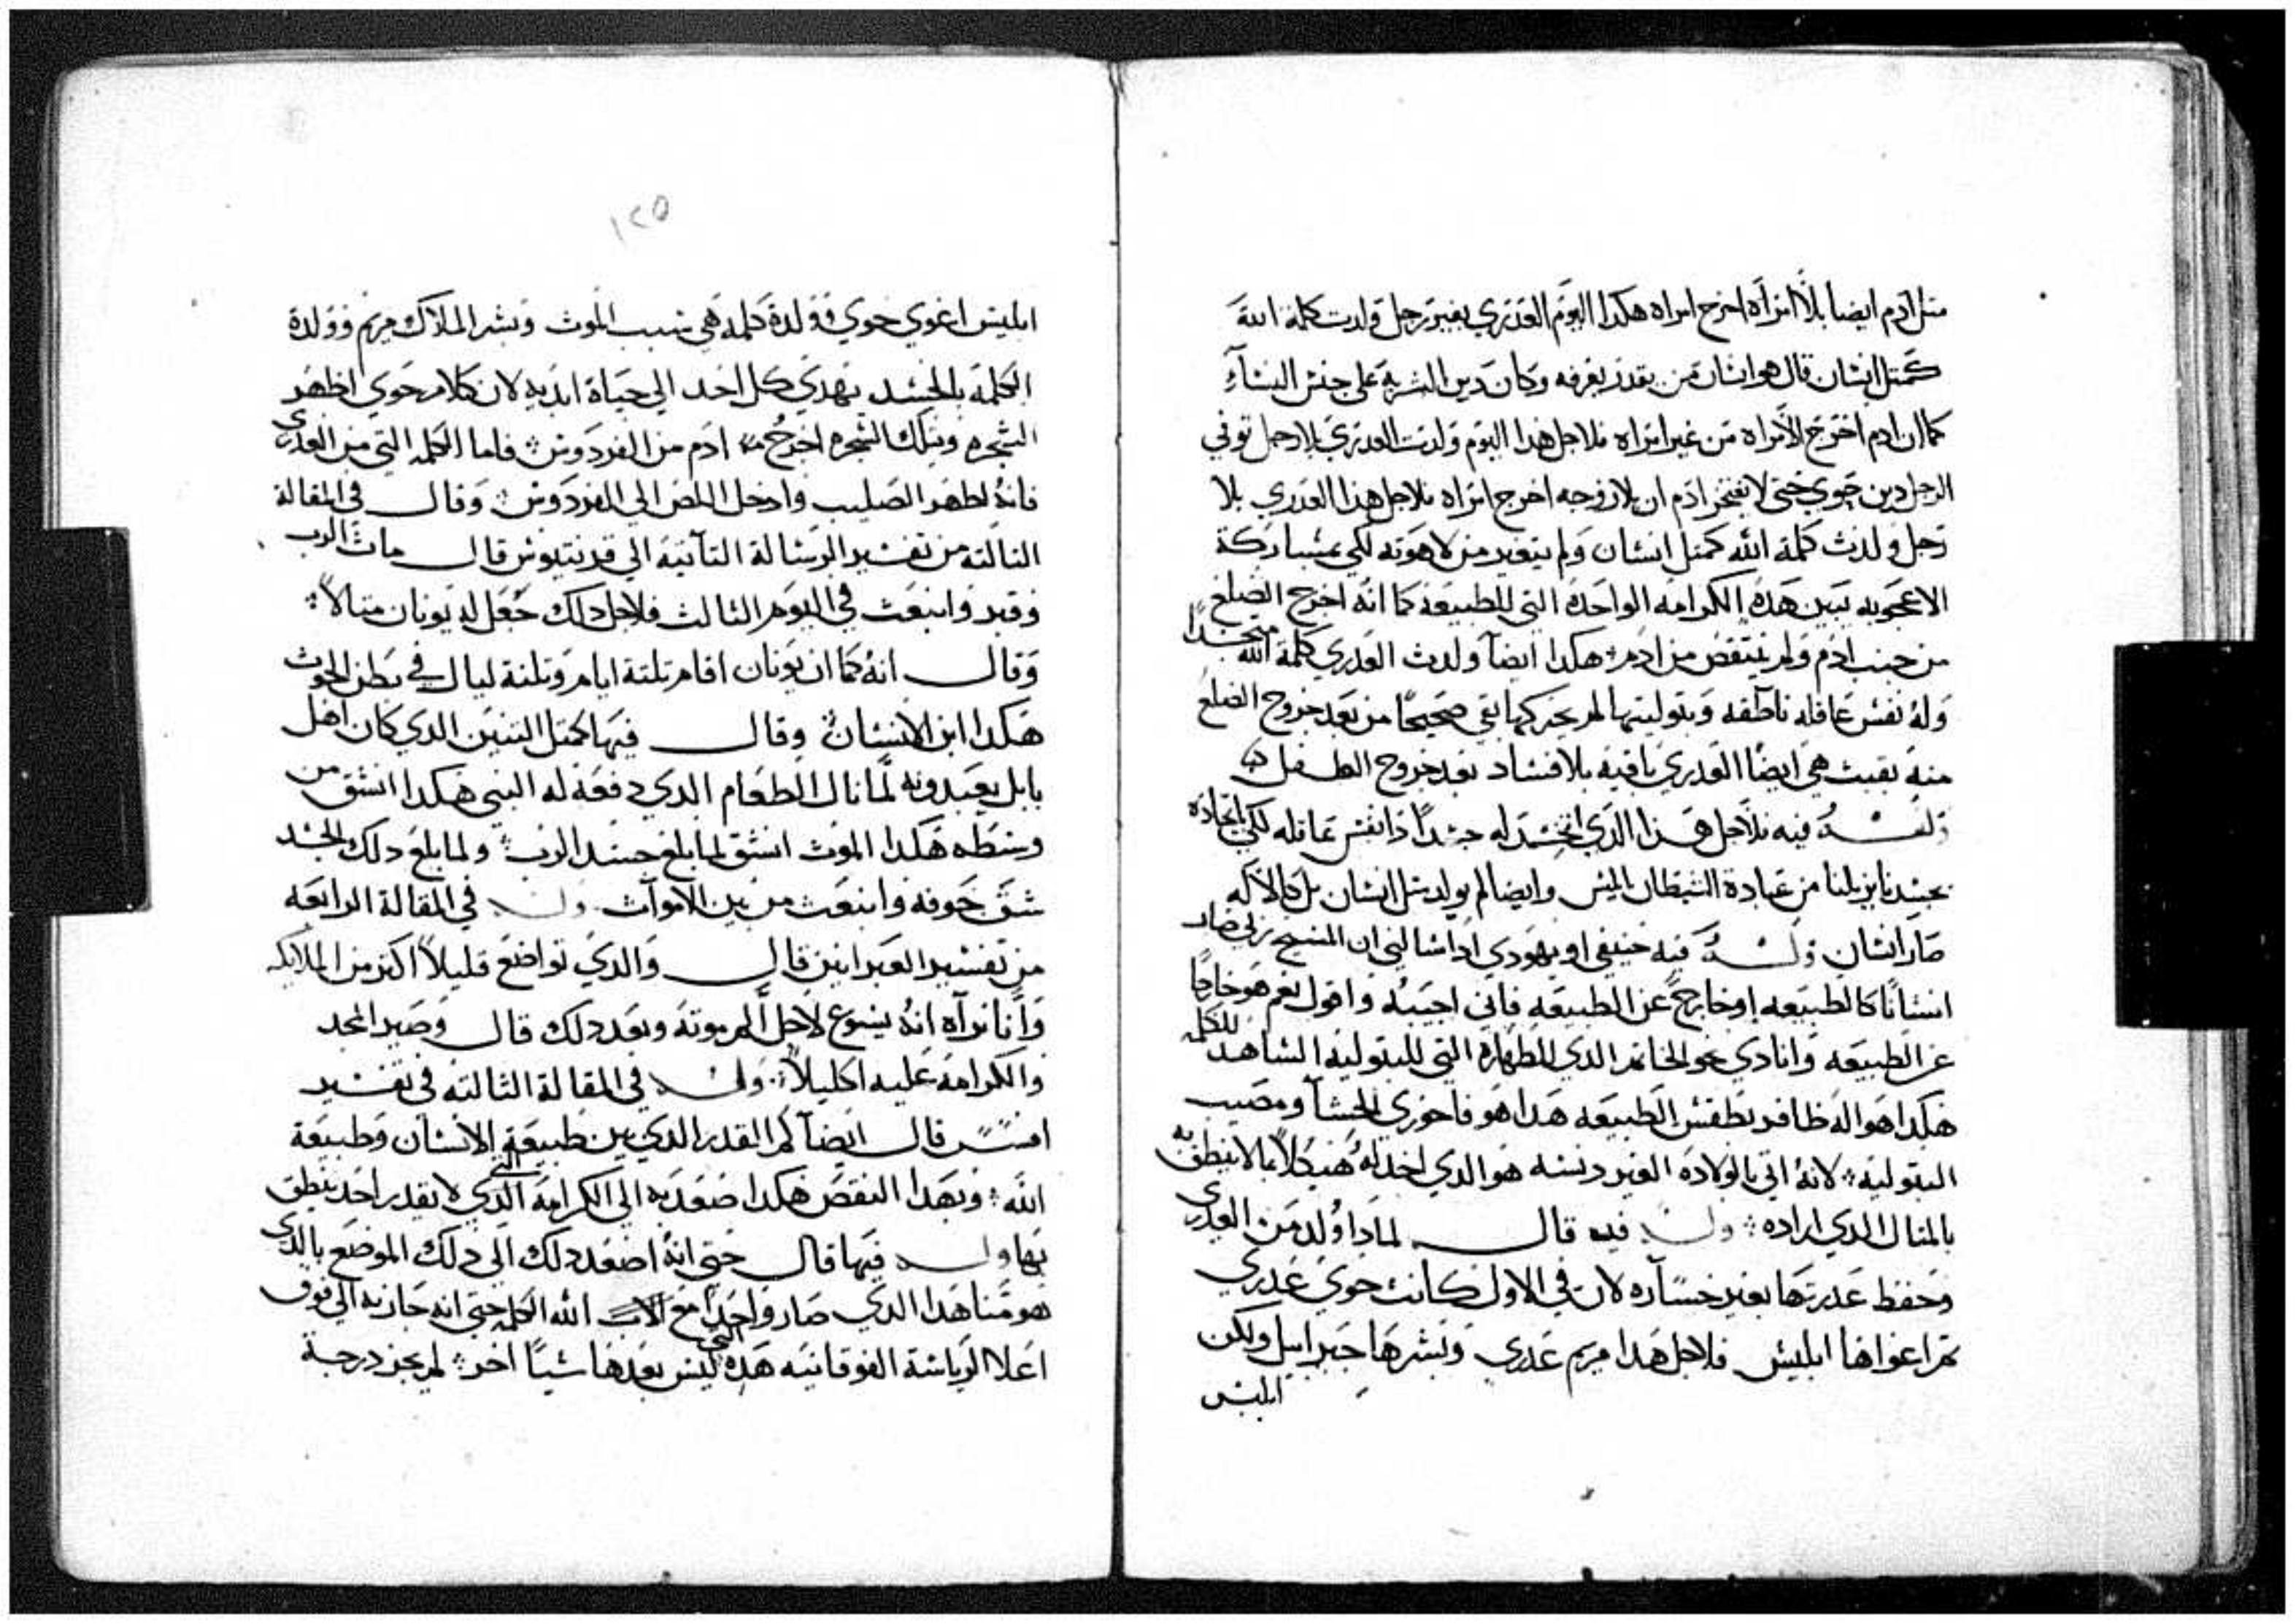 مثل ادم ايضا بلا امراه اخرج امراه هكدا اليوم العدري بغير رجل ولدت كلمة الله
كمتل انسان قال هو انسان من يقدر يعرفه وكان دين الشريه على جنس النساء
كما ان ادم اخرج الامراه من غير امراه فلاجل هدا اليوم ولدت العدري بلا رجل توفي
الرجل دين حوي حتى لا يفتخر ادم ان بلا زوجه اخرج امراه فلاجل هدا العدري بلا
رجل ولدت كلمة الله كمتل انسان ولم يتغير من لاهوته لكي بمشاركة
الاعجوبه تبين هده الكرامه الواحده التي للطبيعه كما انه اخرج الضلع
من جنب ادم ولم ينتقص من ادم هكدا ايضا ولدت العدري كلمة الله متجسدا
وله نفس عاقله ناطقه وبتوليتها لم كما بقي صحيحا من بعد خروج الضلع
منه بقيت هي ايضا العدري باقيه بلا فساد بعد خروج الطفل
وله فيه فلاجل هدا الدي اتخد له جسدا دا نفس عاقله لكي باتحاده
بجسدنا يزيلنا من عبادة الشيطان ابليس وايضا لم يولد متل انسان بل كالاله
صار انسان وله فيه حنيفي او يهودي ادا سالني ان المسيح صار
انسانا كالطبيعه او خارج عن الطبيعه فاني اجيبه واقول نعم هو خارجا
عن الطبيعه وانادي نحو الخاتم الدي للطهاره التي للبتوليه الشاهد للكل
هكدا هو اله ظافر بطقس الطبيعه هدا هو فاخوري الحشا ومصيب
البتوليه لانه اتي بالولاده الغير دنسه هو الدي اخد له هيكلا بما لا ينطق به
بالمتال الدي اراده وله فيه قال لمادا ولد من العدري
وحفظ عدرتها بغير خساره لان في الاول كانت حوي عدري
تم اغواها ابليس فلاجل هدا مريم عدري وبشرها جبراييل ولكن
ابليس
١٢٥
ابليس اغوي حوي وولدة كلمه هي سبب الموت وبشر الملاك مريم وولدة
الكلمه بالجسد يهدي كل احد الي حياة ابديه لان كلام حوي اظهر
الشجره وبتلك الشجره اخرج ادم من الفردوس فاما الكلمه التي من العدري
فانه اظهر الصليب وادخل اللص الي الفردوس وقال في المقالة
التالته من تفسير الرسالة التانيه الي قرنتيوس قال مات الرب
وقبر وانبعت في اليوم الثالث فلاجل دلك جعل له يونان متالا
وقال انه كما ان يونان اقام تلتة ايام وتلتة ليال في بطن الحوت
هكدا ابن الانسان وقال فيها كمتل التنين الدي كان اهل
بابل يعبدونه لما نال الطعام الدي دفعه له النبي هكدا انشق من
وسطه هكدا الموت انشق لما بلغ جسد الرب ولما بلغ دلك الجسد
شق جوفه وانبعت من بين الاموات وله في المقالة الرابعه
من تفسير العبرانين قال والدي تواضع قليلا اكتر من الملايكه
وانا نراه انه يسوع لاجل الم موته وبعد دلك قال وصير المجد
والكرامه عليه اكليلا وله في المقالة الثالته في تفسير
افسس قال ايضا كم القدر الدي بين طبيعة الانسان وطبيعة
الله وبهدا النقص هكدا صعد به الي الكرامه التي الدي لا يقدر احد ينطق
بها وله فيها قال حتى انه اصعد دلك الي دلك الموضع بالدي
هو منا هدا الدي صار واحدا مع الاب الله الكلمه حتى انه جاز به الي فوق
اعلا الرياسة الفوقانيه هده التي ليس بعدها شيا اخر لم يجز درجة